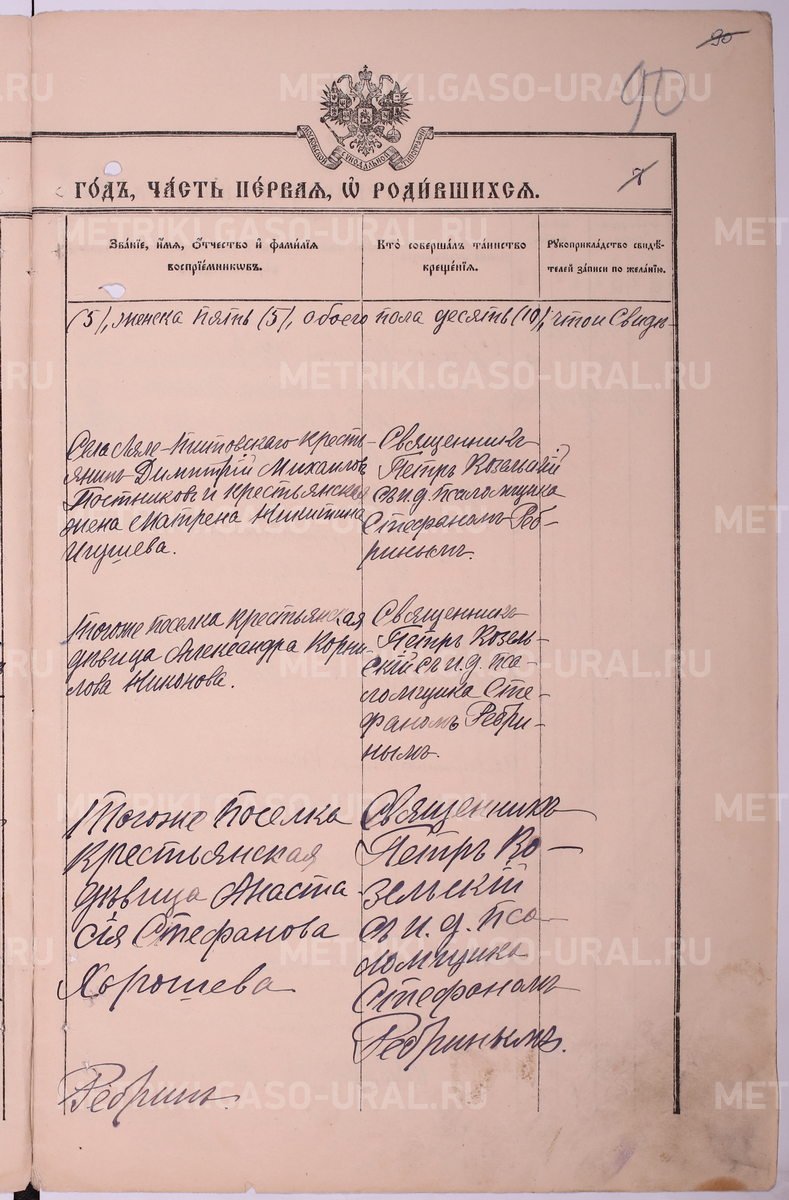 90
90
МОСКОВСКОЙ СѴНОДАЛЬНОЙ ТИПОГРАФІИ
7
ГО́ДЪ, ЧА́СТЬ ПЕ́РВАЯ, Ѡ҆ РОДИ́ВШИХСЯ.
Зва́нїе, и҆́мя, ѻ҆́тчество и҆ фами́лїя
воспрїе́мникѡвъ.
Кто̀ соверша́лъ та́инство
креще́нїя.
Рꙋкоприкла́дство свидѣ́-
телей за́писи по жела́нїю.
(5), женска пять (5), обоего пола десять (10), что и Свидѣ-
Села Ляле-Титовскаго кресть-
янинъ Димитрій Михаиловъ
Постниковъ и крестьянская
жена Матрена Никитина
Игушева.
Священникъ
Петръ Козельскій
съ и. д. псаломщика
Стефаномъ Реб-
ринымъ.
Тогоже поселка крестьянская
дѣвица Александра Корни-
лова Никонова.
Священникъ
Петръ Козель-
скій съ и. д. пса-
ломщика Сте-
фаномъ Ребри-
нымъ.
Тогоже поселка
крестьянская
дѣвица Анаста-
сія Стефанова
Хорошева
Священникъ
Петръ Ко-
зельскій
съ и. д. пса-
ломщика
Стефаномъ
Ребринымъ.
Ребринъ.
METRIKI.GASO-URAL.RU